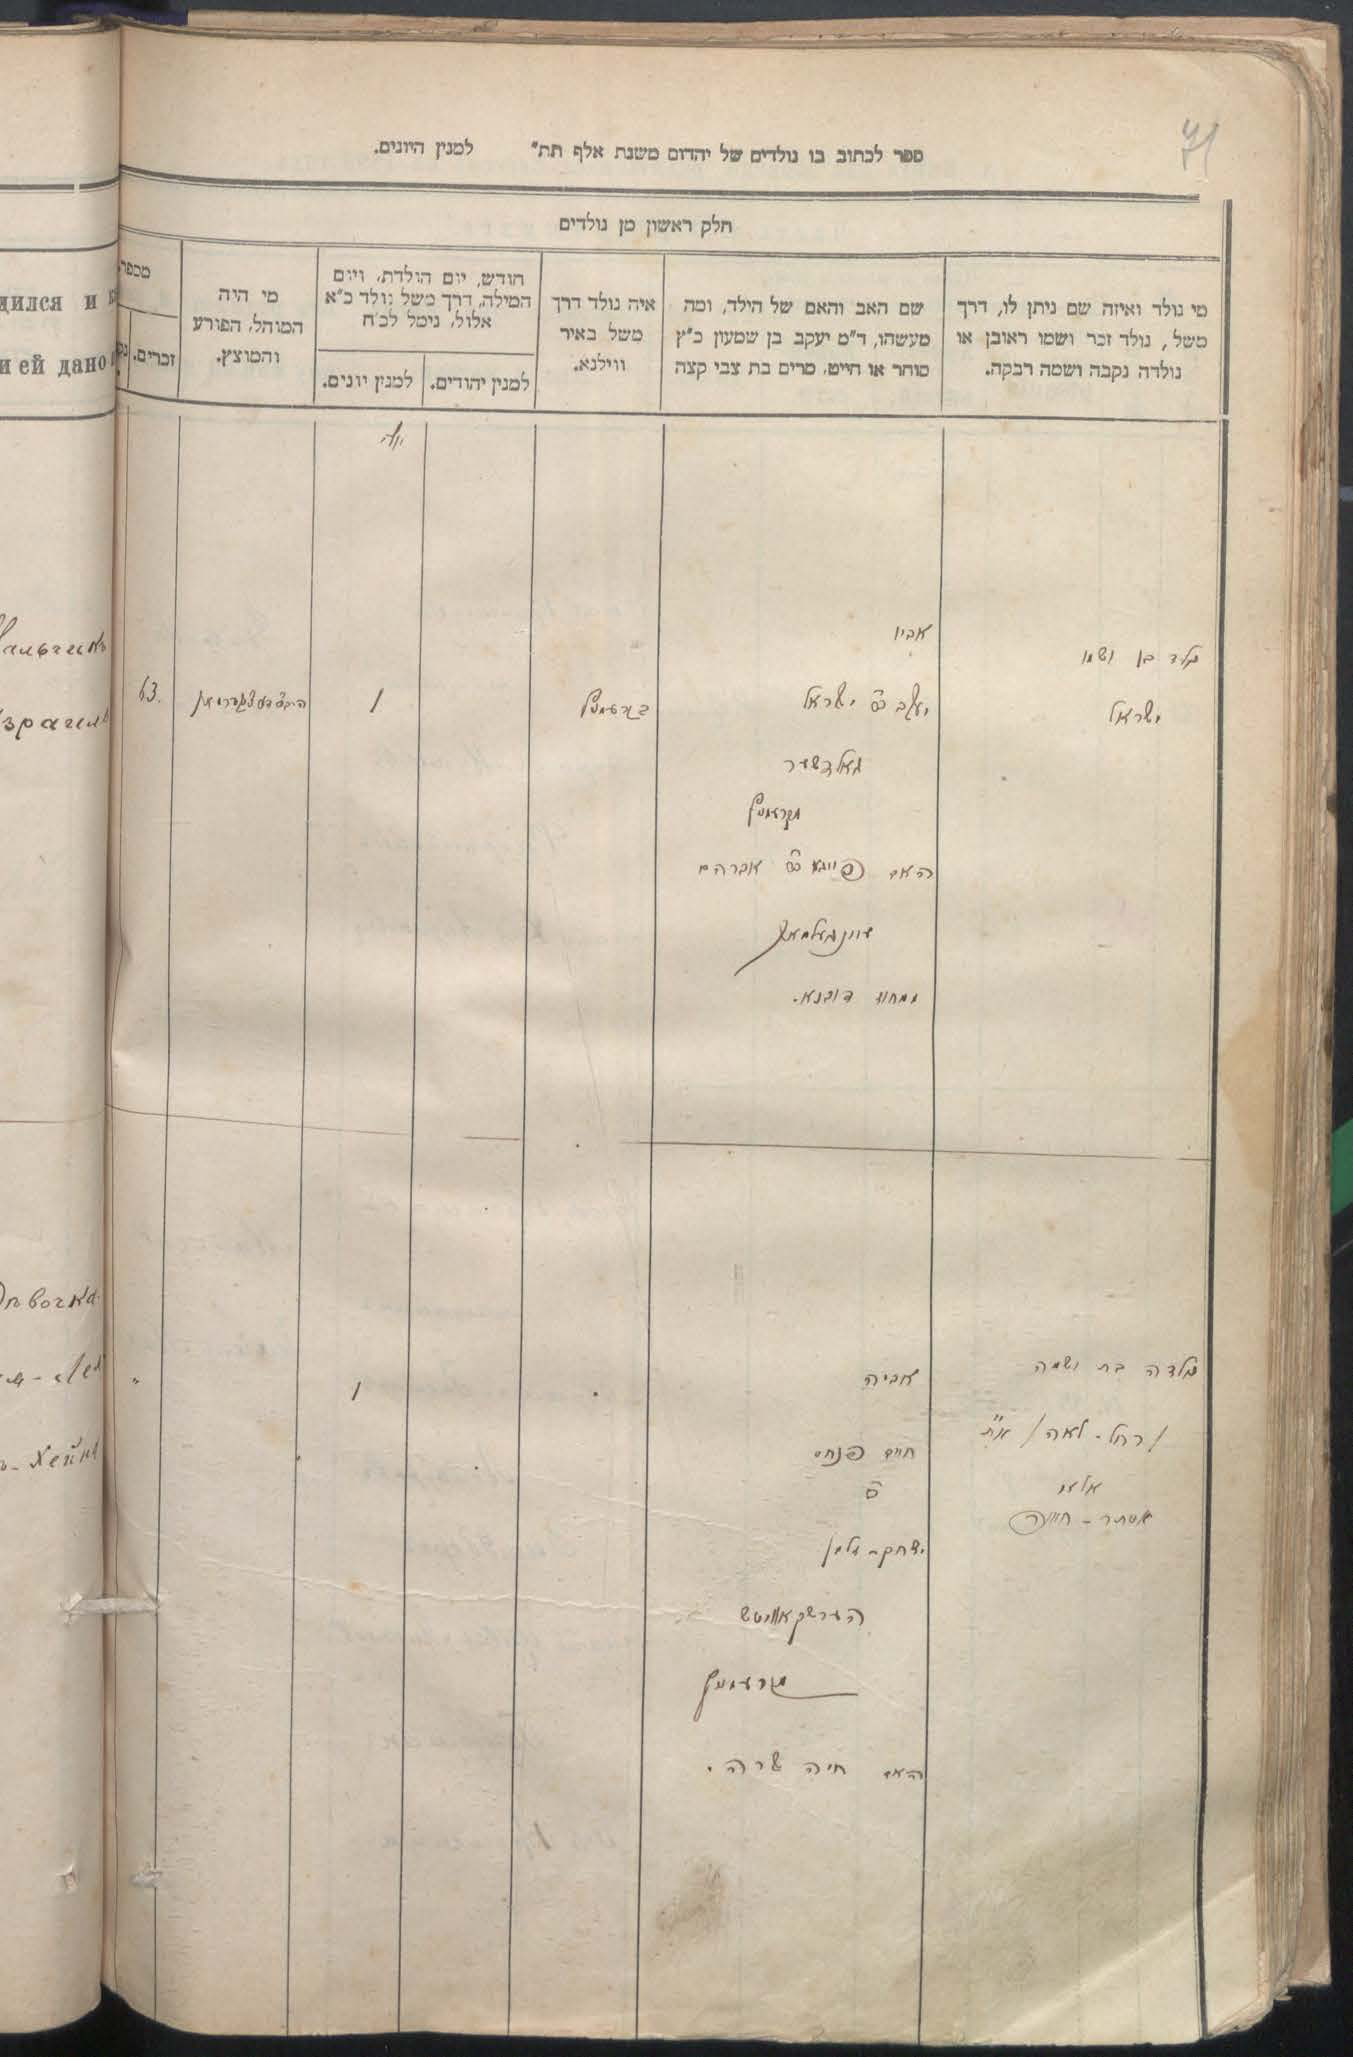 71
ספר לכתוב בו נולדים של יהדום משנת אלף תת״ למנין היונים.
חלק ראשון מן נולדים
מי נולד ואיזה שם ניתן לו, דרך
משל, נולד זכר ושמו ראובן או
נולדה נקבה ושמה רבקה.
שם האב והאם של הילד, ומה
מעשהו, ד״מ יעקב בן שמעון כ״ץ
סוחר או חייט, מרים בת צבי קצה
איה נולד דרך
משל באיר
ווילנא.
חודש, יום הולדת, ויום
המילה, דרך משל נולד כ״א
אלול, נימל לכ״ח
למנין יהודים.
למנין יונים.
מי היה
המוהל, הפורע
והמוצץ.
מספר
זכרים.
יולי
נולד בן ושמו
ישראל
אביו
יעקב ב״ר ישראל
גאלדשטר
האם פייגא ב״ר אברהם
דובנא.
1
63.
נולדה בת ושמה
/ רחל - לאה /
אסתר - חיינה
אביה
חיים פנחס
ב״ר
יצחק - זלמן
הערשקאוויטש
האם חיה שרה.
1
"
дился и
и ей дано
Мальчикъ